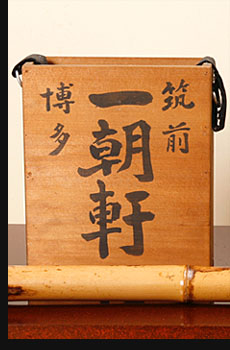 筑前
一朝軒
博多